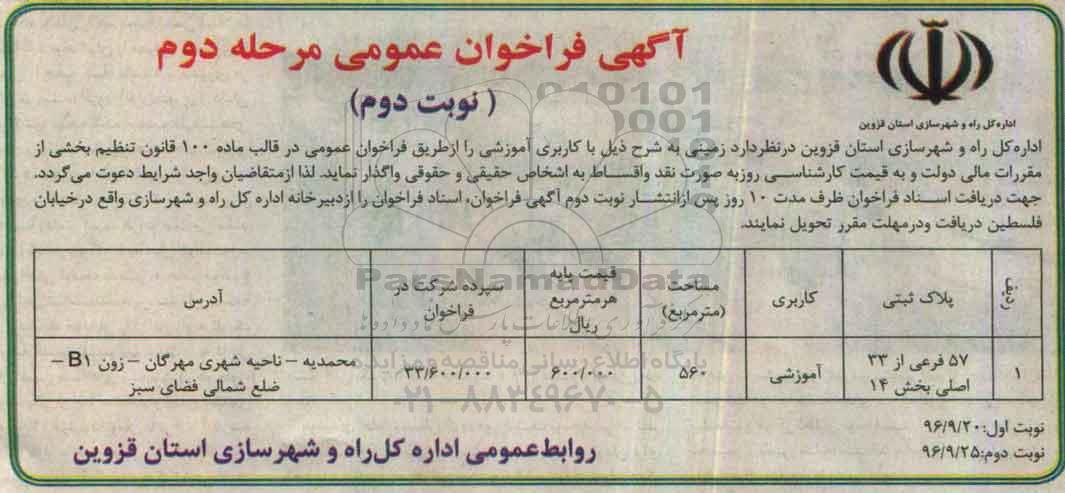 آگهی فراخوان عمومی مرحله دوم
(نوبت دوم)
اداره کل راه و شهرسازی استان قزوین
اداره‌کل راه و شهرسازی استان قزوین درنظردارد زمینی به شرح ذیل با کاربری آموزشی را ازطریق فراخوان عمومی در قالب ماده ۱۰۰ قانون تنظیم بخشی از
مقررات مالی دولت و به قیمت کارشناسی روزبه صورت نقد واقساط به اشخاص حقیقی و حقوقی واگذار نماید. لذا ازمتقاضیان واجد شرایط دعوت می‌گردد.
جهت دریافت اسناد فراخوان ظرف مدت ۱۰ روز پس ازانتشار نوبت دوم آگهی فراخوان، اسناد فراخوان را ازدبیرخانه اداره کل راه و شهرسازی واقع درخیابان
فلسطین دریافت ودرمهلت مقرر تحویل نمایند.
ردیف
پلاک ثبتی
کاربری
مساحت
(مترمربع)
قیمت پایه
هرمترمربع
ریال
سپرده شرکت در
فراخوان
آدرس
۱
۵۷ فرعی از ۳۳
اصلی بخش ۱۴
آموزشی
۵۶۰
۶۰۰/۰۰۰
۳۳/۶۰۰/۰۰۰
محمدیه – ناحیه شهری مهرگان – زون B۱ –
ضلع شمالی فضای سبز
نوبت اول:۹۶/۹/۲۰
نوبت دوم:۹۶/۹/۲۵
روابط‌عمومی اداره کل‌راه و شهرسازی استان قزوین
ParsNamadData
پایگاه اطلاع رسانی مناقصه و مزایده
۰۲۱-۸۸۳۴۹۶۷۰-۵